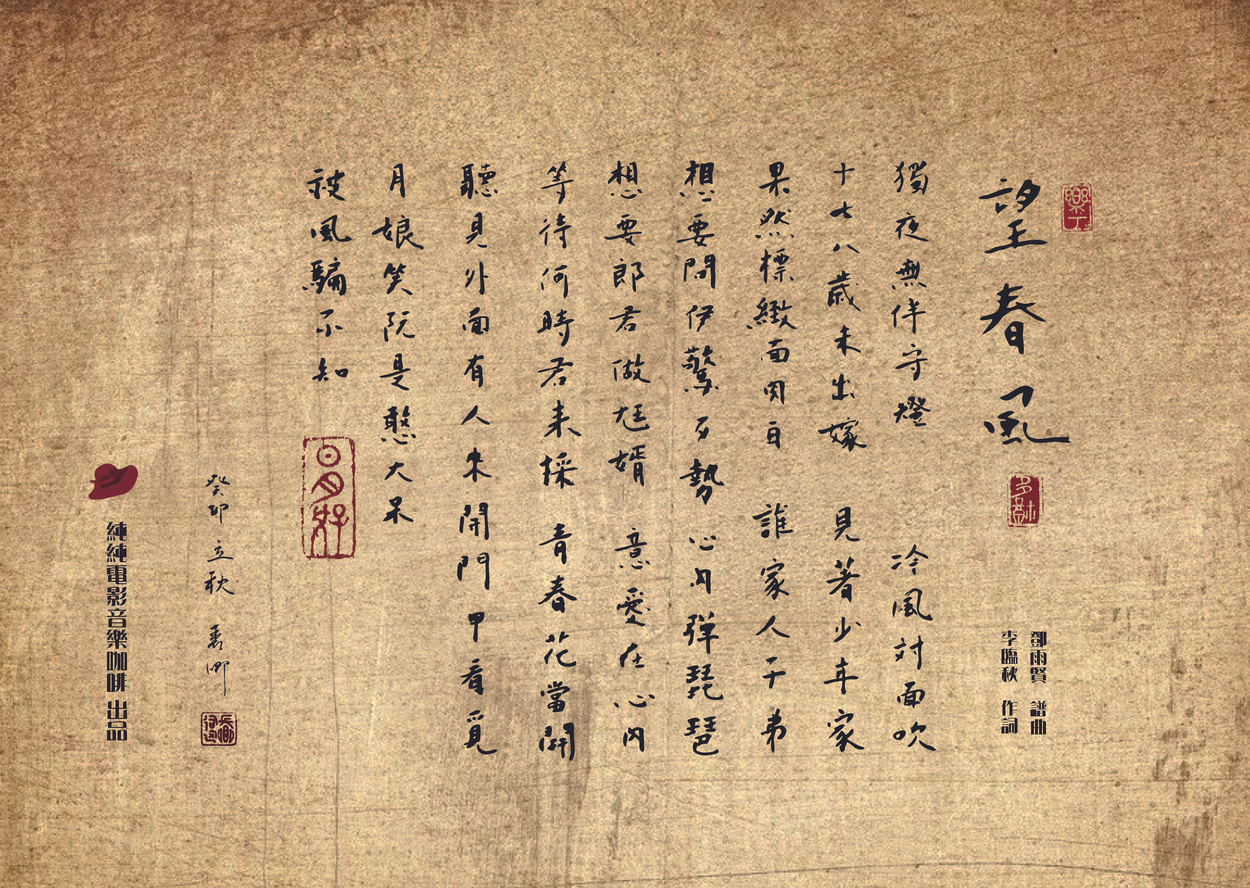 望春風
鄧雨賢 譜曲
李臨秋 作詞
獨夜無伴守燈 冷風対面吹
十七八歲未出嫁 見著少年家
果然標緻面肉白 誰家人子弟
想要問伊驚歹勢 心內彈琵琶
想要郎君做尪婿 意愛在心內
等待何時君來採 青春花當開
聽見外面有人來 開門甲看覓
月娘笑阮是憨大呆
被風騙不知
癸卯立秋
純純電影音樂咖啡 出品